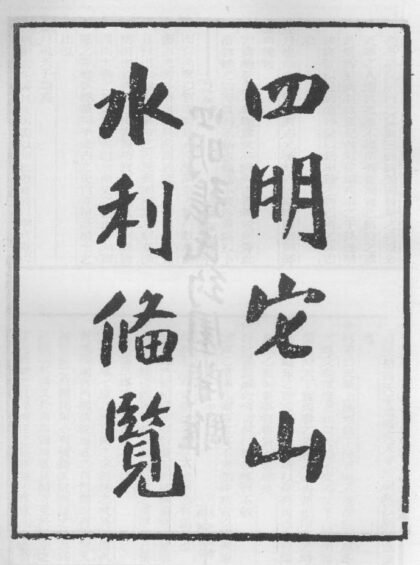 四明它山
水利備覽